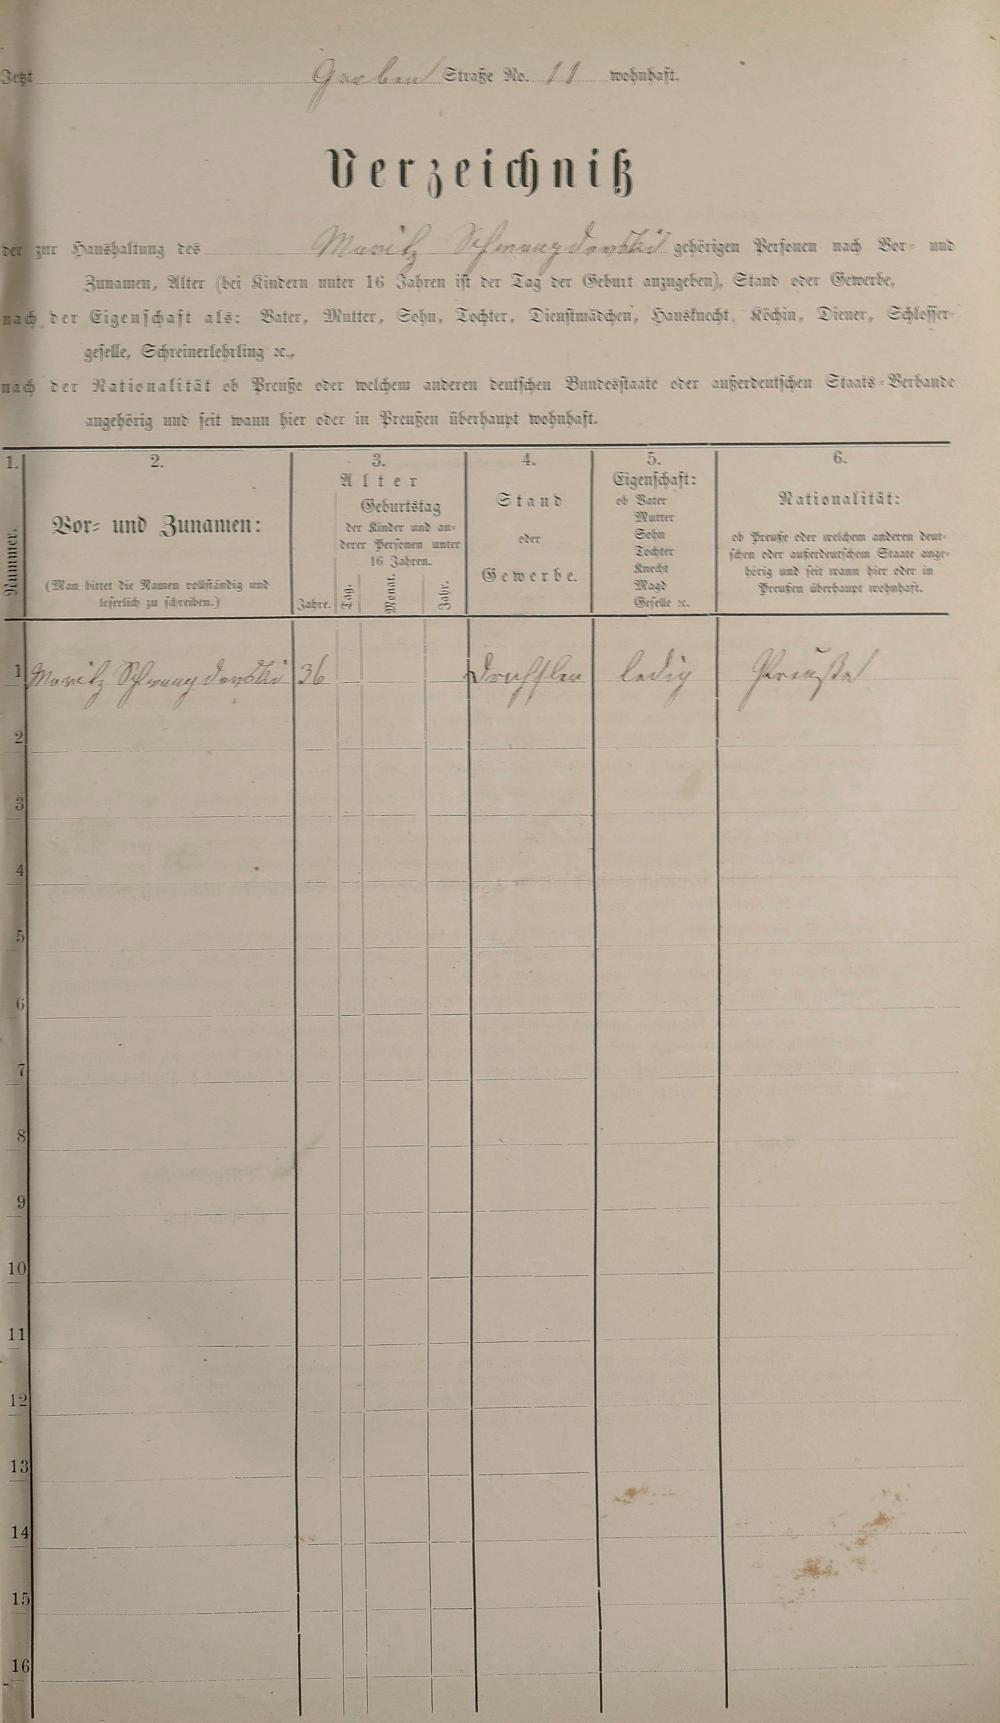 Jetzt Garben Straße No. 11 wohnhaft.
Verzeichniß
der zur Haushaltung des Moritz gehörigen Personen nach Vor- und
Zunamen, Alter (bei Kindern unter 16 Jahren ist der Tag der Geburt anzugeben), Stand oder Gewerbe,
nach der Eigenschaft als: Vater, Mutter, Sohn, Tochter, Dienstmädchen, Hausknecht, Köchin, Diener, Schlosser-
geselle, Schreinerlehrling ꝛc.,
nach der Nationalität ob Preuße oder welchem anderen deutschen Bundesstaate oder außerdeutschen Staats-Verbande
angehörig und seit wann hier oder in Preußen überhaupt wohnhaft.
1. 2. 3. 4. 5. 6.
Nummer.
Vor- und Zunamen:
(Man bittet die Namen vollständig und
leserlich zu schreiben.)
Alter
Geburtstag
der Kinder und an-
derer Personen unter
16 Jahren.
Jahre. Tag. Monat. Jahr.
Stand
oder
Gewerbe.
Eigenschaft:
ob Vater
Mutter
Sohn
Tochter
Knecht
Magd
Geselle ꝛc.
Nationalität:
ob Preuße oder welchem anderen deut-
schen oder außerdeutschem Staate ange-
hörig und seit wann hier oder in
Preußen überhaupt wohnhaft.
1 Moritz 36 ledig Preuße
2
3
4
5
6
7
8
9
10
11
12
13
14
15
16